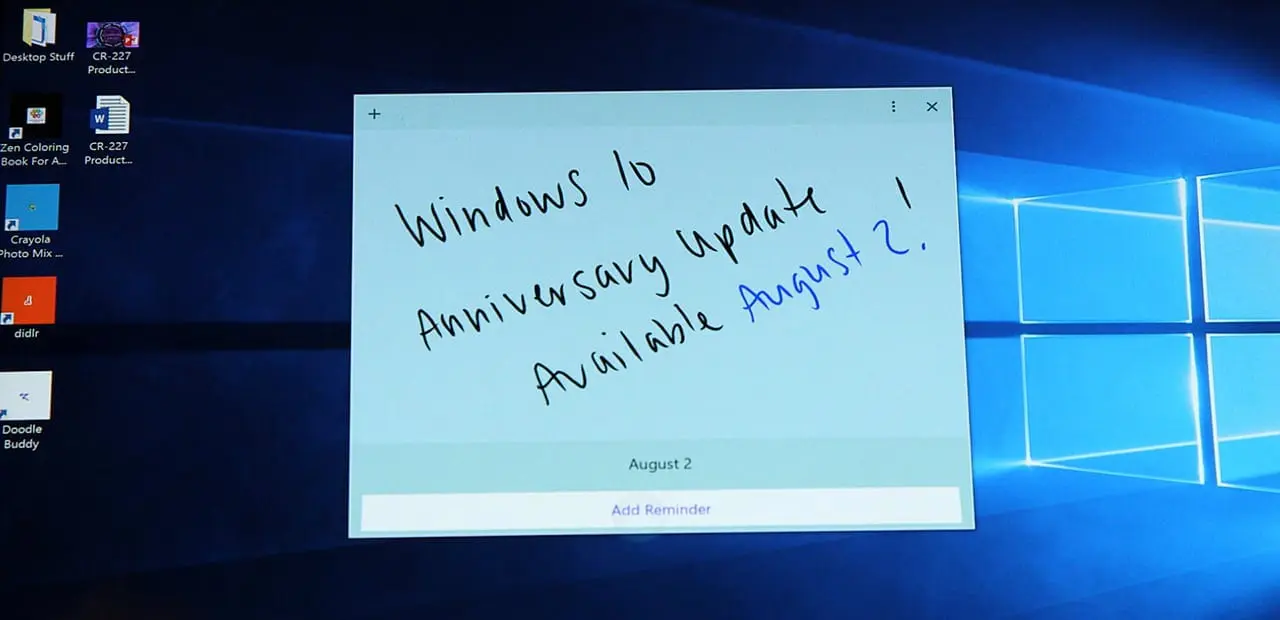 Desktop Stuff
CR-227
Product...
Zen Coloring
Book For A...
CR-227
Product...
Crayola
Photo Mix ...
didlr
Doodle
Buddy
+
Windows 10
Anniversary Update
Available August 2!
August 2
Add Reminder